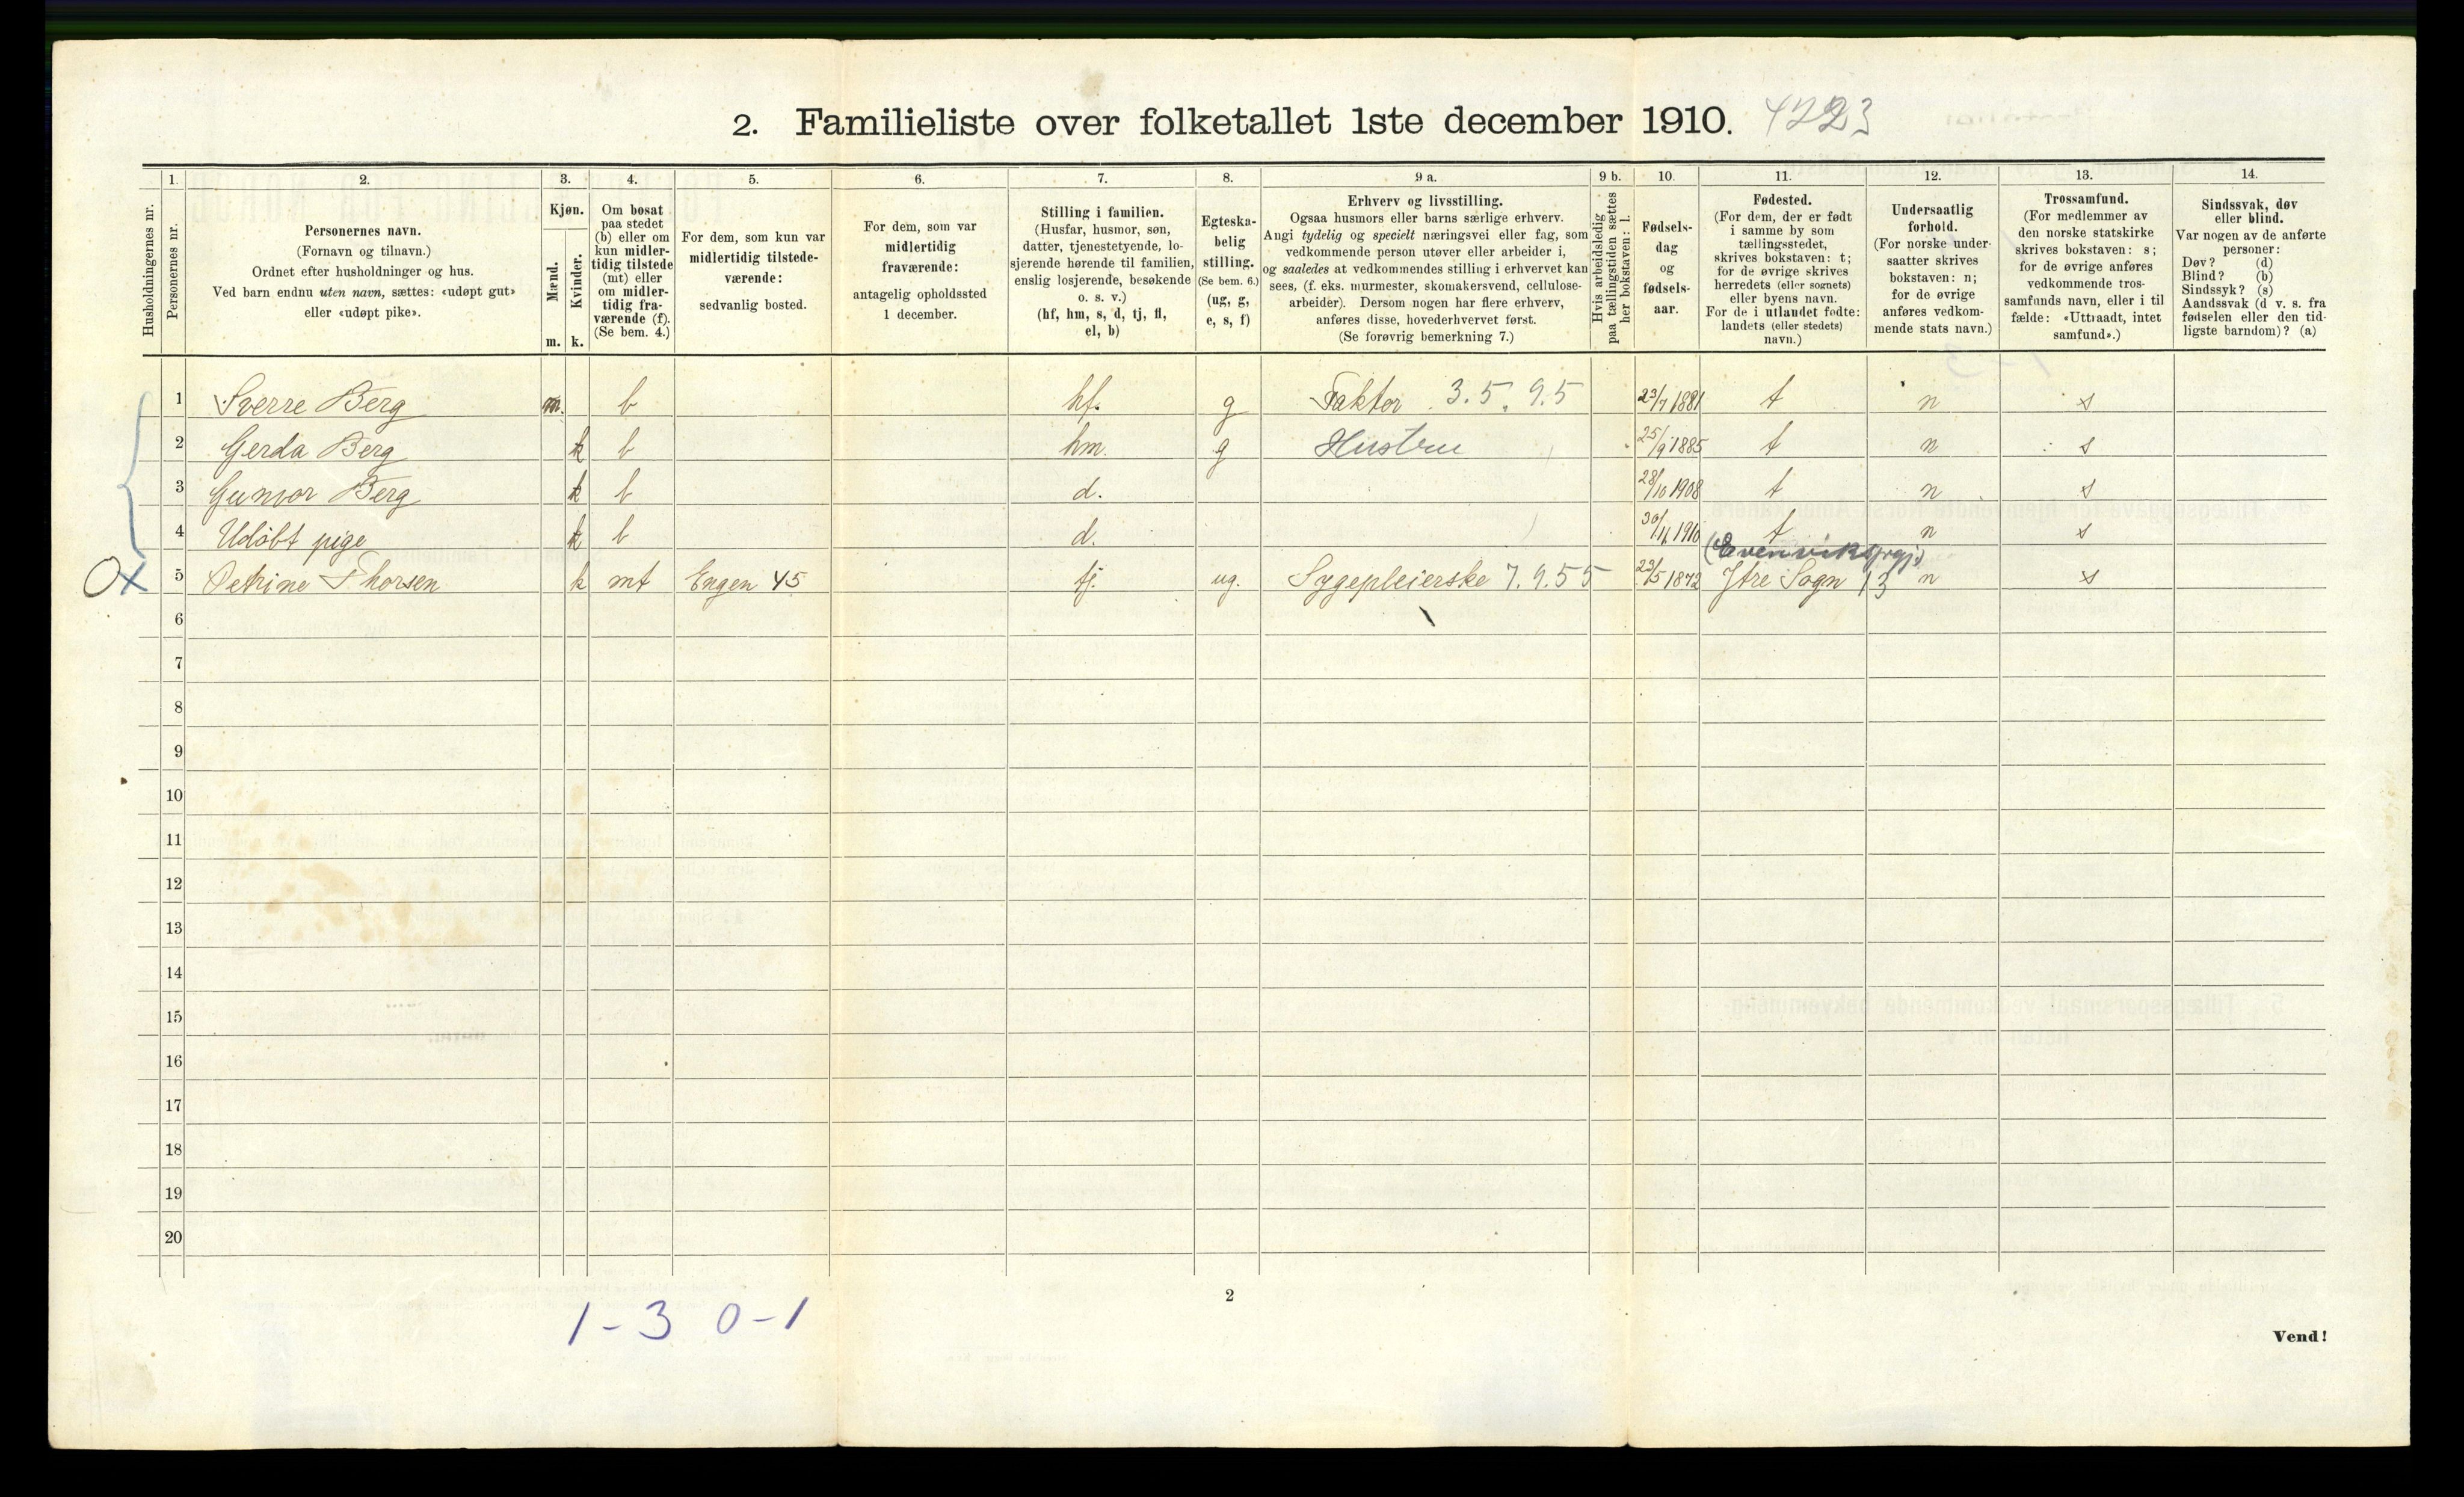 2. Familieliste over folketallet 1ste december 1910. 4223
Husholdningernes nr.
1. Personernes nr.
2. Personernes navn.
(Fornavn og tilnavn.)
Ordnet efter husholdninger og hus.
Ved barn endnu uten navn, sættes: «udøpt gut»
eller «udøpt pike».
3. Kjøn.
Mænd. m.
Kvinder. k.
4. Om bosat
paa stedet
(b) eller om
kun midler-
tidig tilstede
(mt) eller
om midler-
tidig fra-
værende (f).
(Se bem. 4.)
5. For dem, som kun var
midlertidig tilstede-
værende:
sedvanlig bosted.
6. For dem, som var
midlertidig
fraværende:
antagelig opholdssted
1 december.
7. Stilling i familien.
(Husfar, husmor, søn,
datter, tjenestetyende, lo-
sjerende hørende til familien,
enslig losjerende, besøkende
o. s. v.)
(hf, hm, s, d, tj, fl,
el, b)
8. Egteska-
belig
stilling.
(Se bem. 6.)
(ug, g,
e, s, f)
9 a. Erhverv og livsstilling.
Ogsaa husmors eller barns særlige erhverv.
Angi tydelig og specielt næringsvei eller fag, som
vedkommende person utøver eller arbeider i,
og saaledes at vedkommendes stilling i erhvervet kan
sees, (f. eks. murmester, skomakersvend, cellulose-
arbeider). Dersom nogen har flere erhverv,
anføres disse, hovederhvervet først.
(Se forøvrig bemerkning 7.)
9 b. Hvis arbeidsledig
paa tællingstiden sættes
her bokstaven: l.
10. Fødsels-
dag
og
fødsels-
aar.
11. Fødested.
(For dem, der er født
i samme by som
tællingsstedet,
skrives bokstaven: t;
for de øvrige skrives
herredets (eller sognets)
eller byens navn.
For de i utlandet fødte:
landets (eller stedets)
navn.)
12. Undersaatlig
forhold.
(For norske under-
saatter skrives
bokstaven: n;
for de øvrige
anføres vedkom-
mende stats navn.)
13. Trossamfund.
(For medlemmer av
den norske statskirke
skrives bokstaven: s;
for de øvrige anføres
vedkommende tros-
samfunds navn, eller i til
fælde: «Uttraadt, intet
samfund».)
14. Sindssvak, døv
eller blind.
Var nogen av de anførte
personer:
Døv? (d)
Blind? (b)
Sindssyk? (s)
Aandssvak (d v. s. fra
fødselen eller den tid-
ligste barndom)? (a)
1 Sverre Berg m. b hf. g Faktor 3.5.9.5 23/7 1881 t n s
2 Gerda Berg k b hm. g Hustru 25/9 1885 t n s
3 Gunvor Berg k b d. 28/10 1908 t n s
4 Udöbt pige k b d. 30/11 1910 t n s
(Evenviks prgj)
Ox 5 Petrine Thorsen k mt Engen 45 tj. ug. Sygepleierske 7.9.55 23/5 1872 Ytre Sogn 13 n s
6
7
8
9
10
11
12
13
14
15
16
17
18
19
20
2
1-3 0-1
Vend!